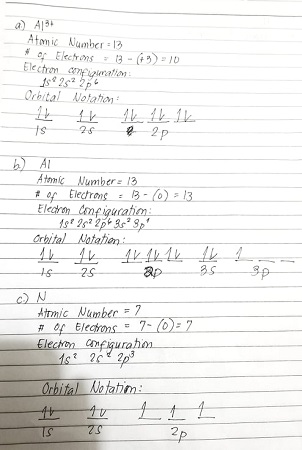 a) Al³⁺
Atomic Number = 13
# of Electrons = 13 - (+3) = 10
Electron configuration:
1s² 2s² 2p⁶
Orbital Notation:
1↓ 1↓ 1↓ 1↓ 1↓
1s 2s 2p
b) Al
Atomic Number = 13
# of Electrons = 13 - (0) = 13
Electron Configuration:
1s² 2s² 2p⁶ 3s² 3p¹
Orbital Notation:
1↓ 1↓ 1↓ 1↓ 1↓ 1↓ 1
1s 2s 2p 3s 3p
c) N
Atomic Number = 7
# of Electrons = 7 - (0) = 7
Electron Configuration
1s² 2s² 2p³
Orbital Notation:
1↓ 1↓ 1 1 1
1s 2s 2p